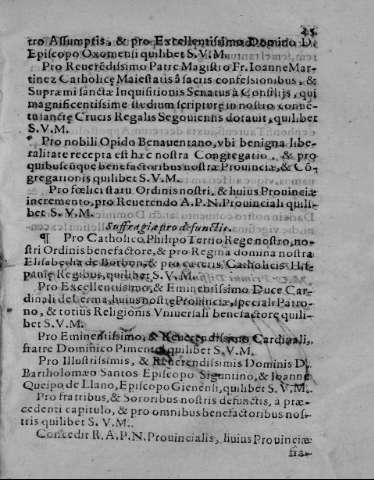 25
tro Assumptis, & pro Excellentissimo Domino D.
Episcopo Oxomensi quilibet S. V. M.
Pro Reuerẽdissimo Patre Magistro Fr. Ioanne Mar-
tinez Catholicę Maiestatis â sactis confessionibus, &
Supręmi sanctæ Inquisitionis Senatus à Consilijs, qui
magnificentissime studium scripturę in nostro conuẽ-
tu sanctę Crucis Regalis Segouiensis dotauit, quilibet
S. V. M.
Pro nobili Opido Benauentano, vbi benigna libe-
ralitate recepta est hæc nostra Congregatio, & pro
quibuscũque benefactoribus nostræ Prouinciæ, & Cõ-
gregationis quilibet S. V. M.
Pro fœlici statu Ordinis nostri, & huius Prouinciæ
incremento, pro Reuerendo A. P. N. Prouinciali quili-
bet S. V. M.
Suffragia pro defunctis.
¶ Pro Catholico Philipo Tertio Rege nostro, no-
stri Ordinis benefactore, & pro Regina domina nostra
Elisabetha de Borbon, & pro cæteris Catholicis His-
panię Regibus, quilibet S. V. M.
Pro Excellentissimo, & Eminentissimo Duce Car-
dinali de Lerma, huius nostrę Prouinciæ, speciali Patro-
no, & totius Religionis Vniuersali benefactore quili-
bet S. V. M.
Pro Eminentissimo, & Reuerendissimo Cardinali,
fratre Dominico Pimentel quilibet S. V. M.
Pro Illustrissimis, & Reuerendissimis Dominis D.
Bartholomæo Santos Episcopo Siguntino, & Ioanne
Queipo de Llano, Episcopo Gienensi, quilibet S. V. M.
Pro fratribus, & Sororibus nostris defunctis, à præ-
cedenti capitulo, & pro omnibus benefactoribus nos-
tris quilibet S. V. M.
Concedit R. A. P. N. Prouincialis, huius Prouinciæ
fra-